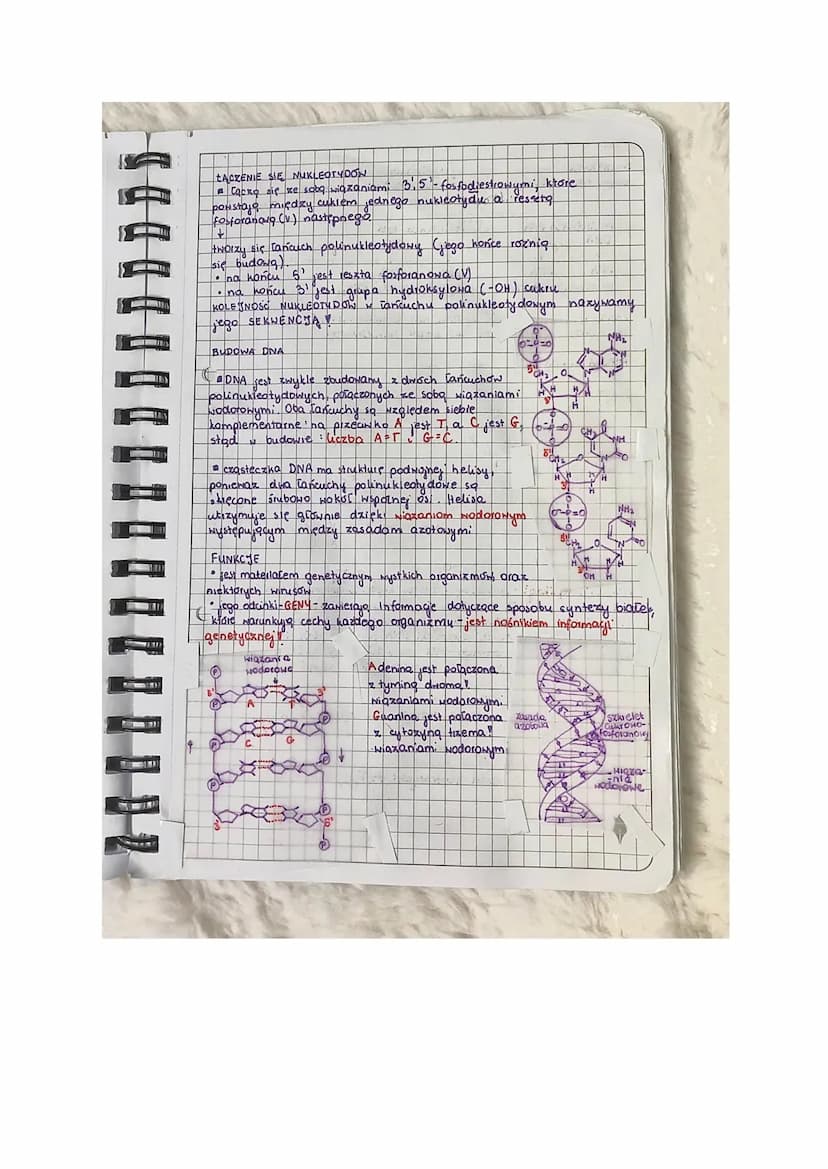 ŁĄCZENIE SIĘ NUKLEOTYDÓW
▪ łączą się ze sobą wiązaniami 3',5'-fosfodiestrowymi, które
powstają między cukrem jednego nukleotydu a resztą
fosforanową (V) następnego
↓
tworzy się łańcuch polinukleotydowy (jego końce różnią
się budową).
• na końcu 5' jest reszta fosforanowa (V)
• na końcu 3' jest grupa hydroksylowa (-OH) cukru
KOLEJNOŚĆ NUKLEOTYDÓW w łańcuchu polinukleotydowym nazywamy
jego SEKWENCJĄ!
BUDOWA DNA
▪ DNA jest zwykle zbudowany z dwóch łańcuchów
polinukleotydowych, połączonych ze sobą wiązaniami
wodorowymi. Oba łańcuchy są względem siebie
komplementarne: na przeciwko A jest T, a C jest G,
stąd w budowie: liczba A=T i G=C.
▪ cząsteczka DNA ma strukturę podwójnej helisy,
ponieważ dwa łańcuchy polinukleotydowe są
skręcone śrubowo wokół wspólnej osi. Helisa
utrzymuje się głównie dzięki wiązaniom wodorowym
występującym między zasadami azotowymi
FUNKCJE
• jest materiałem genetycznym wystkich organizmów oraz
niektórych wirusów
• jego odcinki-GENY- zawierają informacje dotyczące sposobu syntezy białek,
które warunkują cechy każdego organizmu -jest nośnikiem informacji
genetycznej!
wiązania
wodorowe
P
5'
3'
A
T
P
P
C
G
P
P
P
P
3'
5'
P
Adenina jest połączona
z tyminą dwoma!
wiązaniami wodorowymi.
Guanina jest połączona
z cytozyną trzema!
wiązaniami wodorowymi
zasada
azotowa
szkielet
cukrowo-
fosforanowy
wiąza-
nia
wodorowe
NH₂
5'
CH₂
O
H
H
3'
5'
CH₂
NH
O
3'
NH₂
5'
CH₂
O
N
O
3'
OH
H